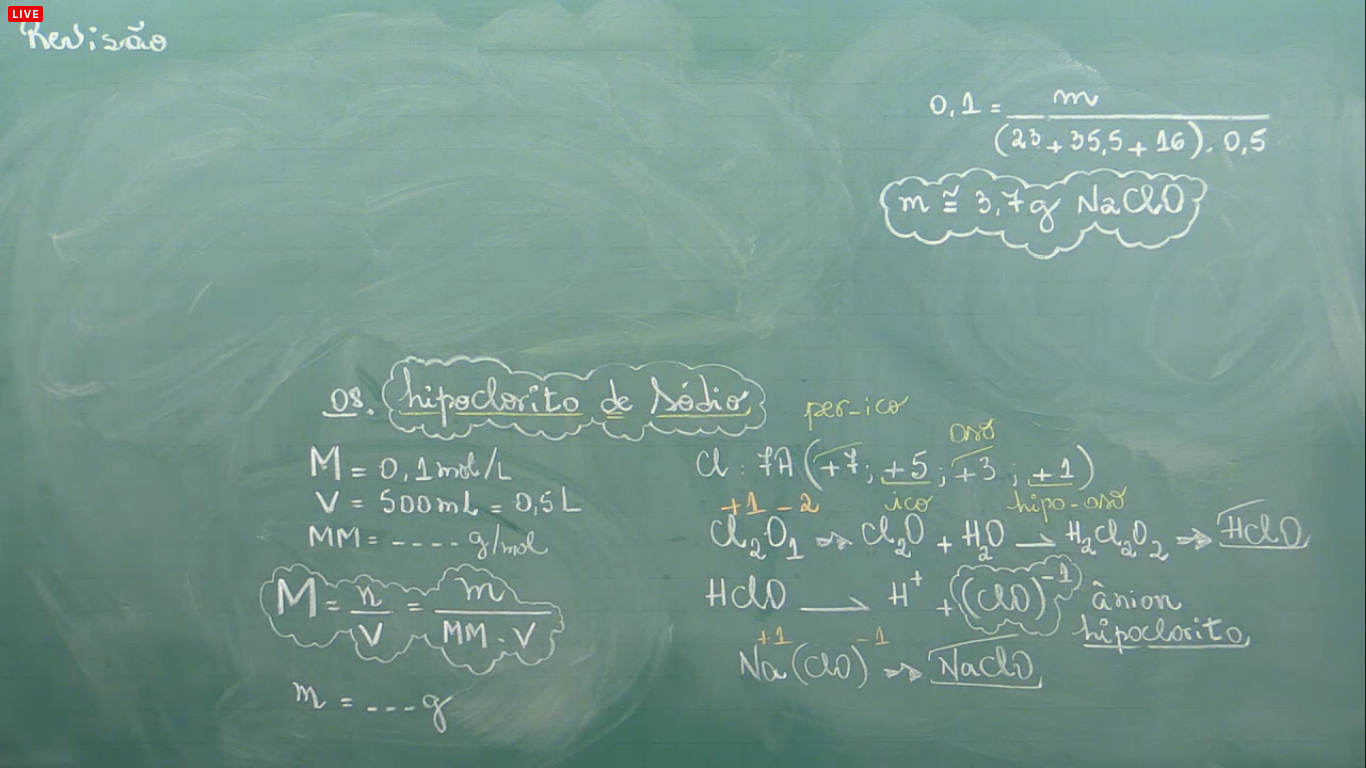 LIVE
Revisão
0,1 = m / (23 + 35,5 + 16) . 0,5
m ≅ 3,7g NaClO
08. hipoclorito de sódio
M = 0,1 mol/L
V = 500 mL = 0,5 L
MM = ---- g/mol
M = n/V = m/(MM . V)
m = --- g
per-ico
oso
Cl : 7A (+7; +5; +3; +1)
ico hipo-oso
+1 -2
Cl₂O₁ ⇒ Cl₂O + H₂O → H₂Cl₂O₂ ⇒ HClO
HClO → H⁺ + (ClO)⁻¹ ânion hipoclorito
+1 -1
Na(ClO) ⇒ NaClO